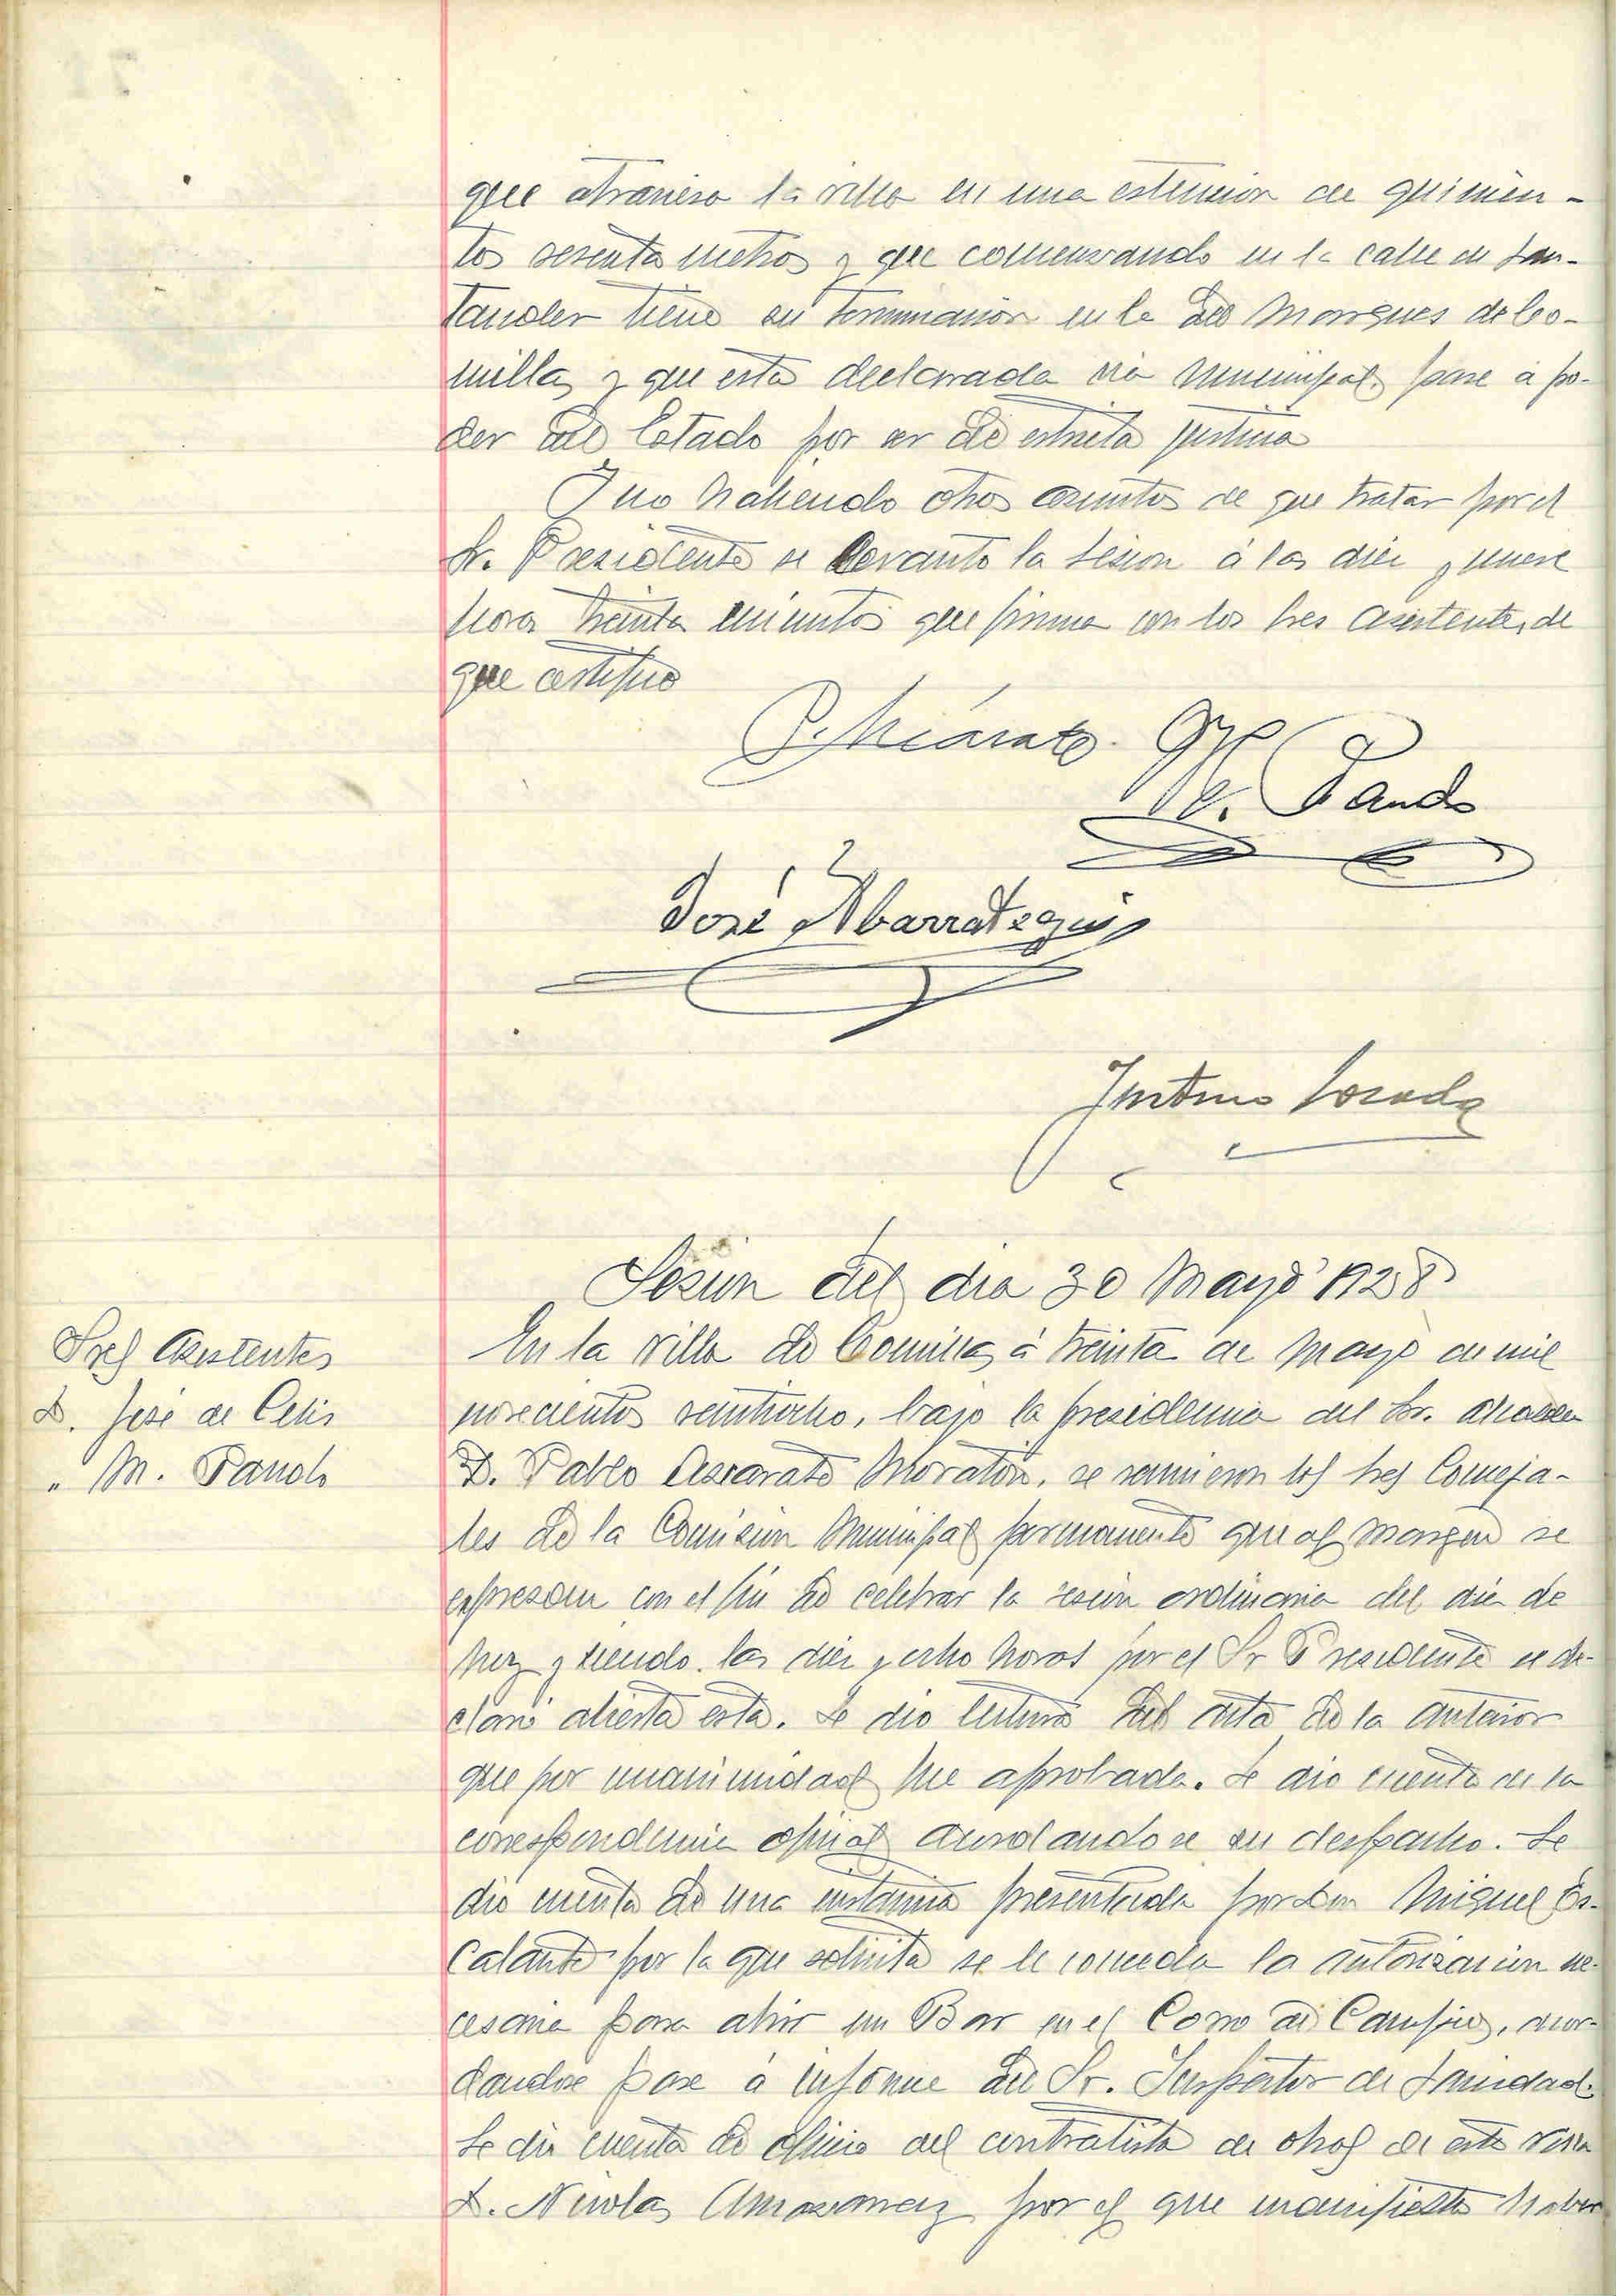 que atraviesa la villa en una estension de quinien-
tos sesenta metros y que comenzando en la calle de San-
tander tiene su terminación en la del Marques de Co-
millas y que esta declarada via municipal, pase á po-
der del Estado por ser de estricta justicia
Y no habiendo otros asuntos de que tratar por el
Sr. Presidente se levantó la sesion á las diez y nueve
horas treinta minutos que firma con los Sres asistentes, de
que certifico
P. Ascárate
M. Pando
José Abarrategui
Sesion del dia 30 Mayo 1928
Sres Asistentes
D. José de Celis
" M. Pando
En la villa de Comillas á treinta de Mayo de mil
novecientos veintiocho, bajo la presidencia del Sr. Alcalde
D. Pablo Ascarate Moratón, se reunieron los Sres Conceja-
les de la Comision Municipal permanente que al margen se
expresan con el fin de celebrar la sesión ordinaria del dia de
hoy y siendo las diez y ocho horas por el Sr Presidente se de-
claró abierta esta. Se dio lectura del acta de la anterior
que por unanimidad fue aprobada. Se dio cuenta de la
correspondencia oficial acordandose su despacho. Se
dio cuenta de una instancia presentada por Don Miguel Es-
calante por la que solicita se le conceda la autorizacion ne-
cesaria para abrir un Bar en el Corro de Campíos, acor-
dandose pase á informe del Sr. Inspector de Sanidad.
Se dio cuenta de oficio del contratista de obras de esta villa
D. Nicolas por el que manifiesta haber